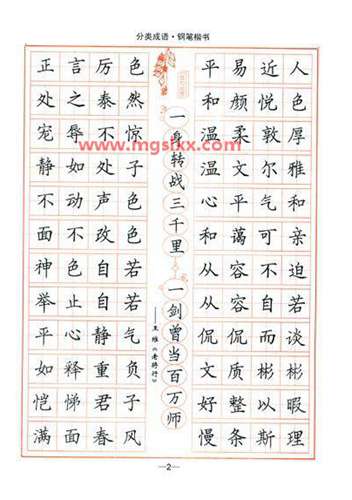 分类成语·钢笔楷书
正言厉色
处之泰然
宠辱不惊
静如处子
不动声色
面不改色
神色自若
举止自若
平心静气
如释重负
恺悌君子
满面春风
一身转战三千里
一剑曾当百万师
——王维《老将行》
平易近人
和颜悦色
温柔敦厚
温文尔雅
心平气和
和蔼可亲
从容不迫
从容自若
侃侃而谈
文质彬彬
好整以暇
慢条斯理
—2—